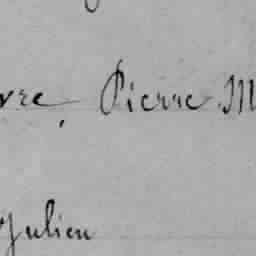 Pierre M
Julien